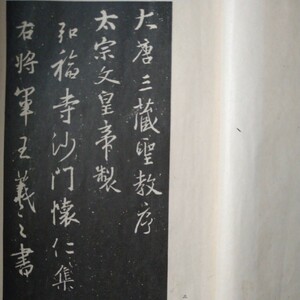 大唐三藏聖教序
太宗文皇帝製
弘福寺沙門懷仁集
右將軍王羲之書